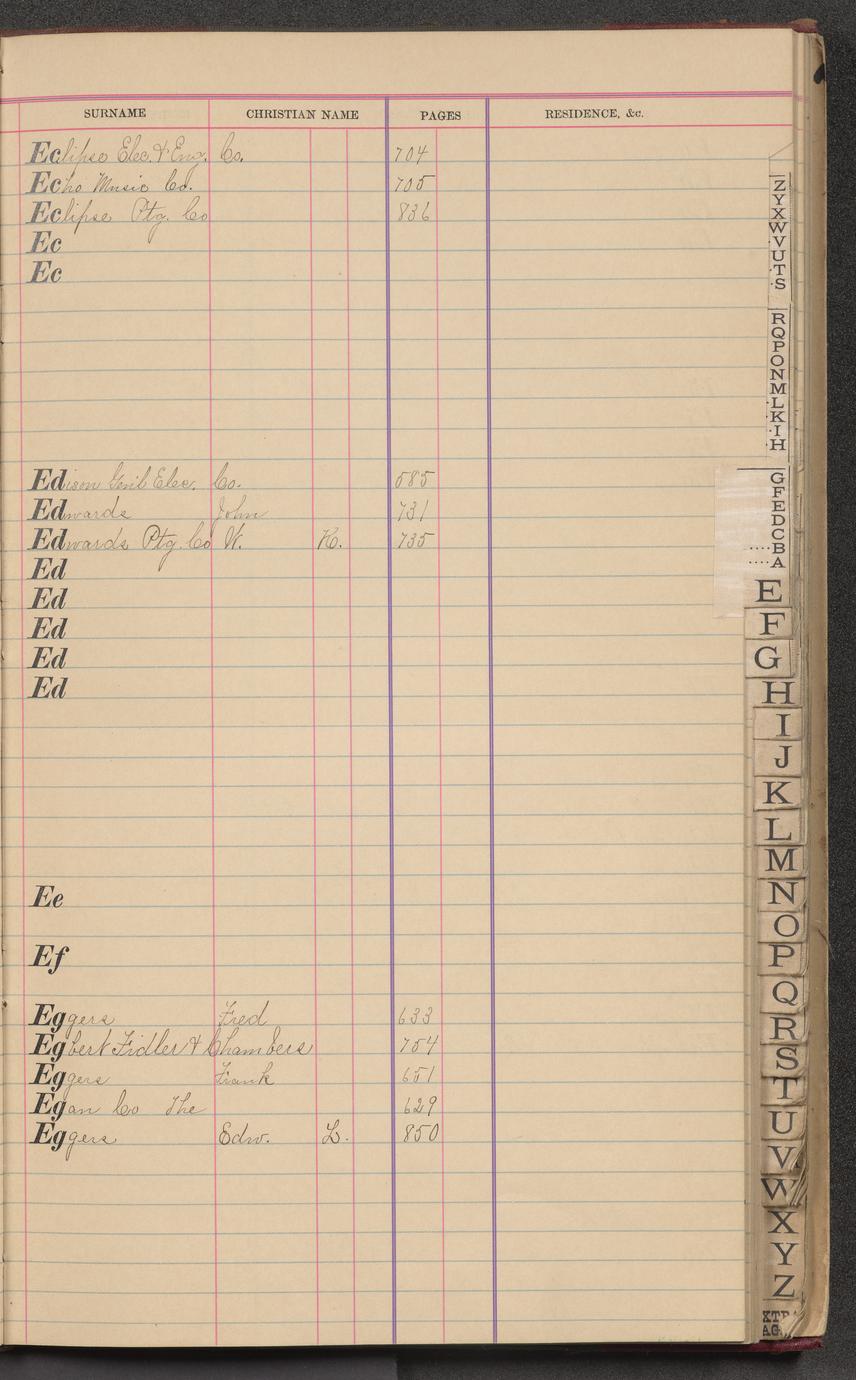 SURNAME CHRISTIAN NAME PAGES RESIDENCE, &c.
Eclipse Elec. & Eng. Co. 704
Echo Music Co. 705
Eclipse Ptg. Co 836
Ec
Ec
Edison Genl Elec. Co. 585
Edwards John 731
Edwards Ptg. Co W. K. 735
Ed
Ed
Ed
Ed
Ed
Ee
Ef
Eggers Fred 633
Egbert Fidler & Chambers 754
Eggers Frank 651
Egan Co The 629
Eggers Edw. L. 850
Z
Y
X
W
V
U
T
S
R
Q
P
O
N
M
L
K
I
H
G
F
E
D
C
B
A
E
F
G
H
I
J
K
L
M
N
O
P
Q
R
S
T
U
V
W
X
Y
Z